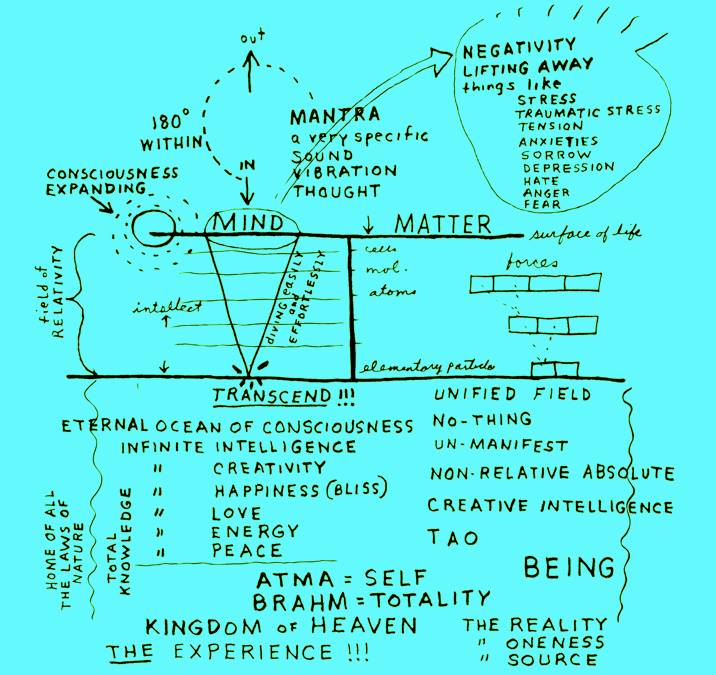 out
180° WITHIN
IN
MANTRA
a very specific
SOUND
VIBRATION
THOUGHT
NEGATIVITY
LIFTING AWAY
things like
STRESS
TRAUMATIC STRESS
TENSION
ANXIETIES
SORROW
DEPRESSION
HATE
ANGER
FEAR
CONSCIOUSNESS
EXPANDING
MIND
MATTER
surface of life
field of
RELATIVITY
intellect
DIVING EASILY
and
EFFORTLESSLY
cells
mol.
atoms
elementary particles
forces
TRANSCEND!!!
ETERNAL OCEAN OF CONSCIOUSNESS
INFINITE INTELLIGENCE
" CREATIVITY
" HAPPINESS (BLISS)
" LOVE
" ENERGY
" PEACE
HOME OF ALL
THE LAWS OF
NATURE
TOTAL
KNOWLEDGE
UNIFIED FIELD
NO-THING
UN-MANIFEST
NON-RELATIVE ABSOLUTE
CREATIVE INTELLIGENCE
TAO
BEING
ATMA = SELF
BRAHM = TOTALITY
KINGDOM OF HEAVEN
THE EXPERIENCE !!!
THE REALITY
" ONENESS
" SOURCE